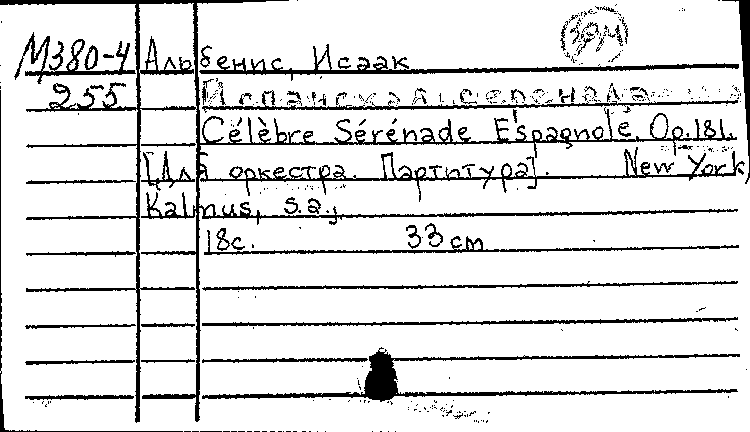 М380-4 Альбенис, Исаак
255 Испанская серенада
Célèbre Sérénade Espagnole. Op. 181.
[Для оркестра. Партитура]. New York,
Kalmus, s.a.,
18с. 33 cm